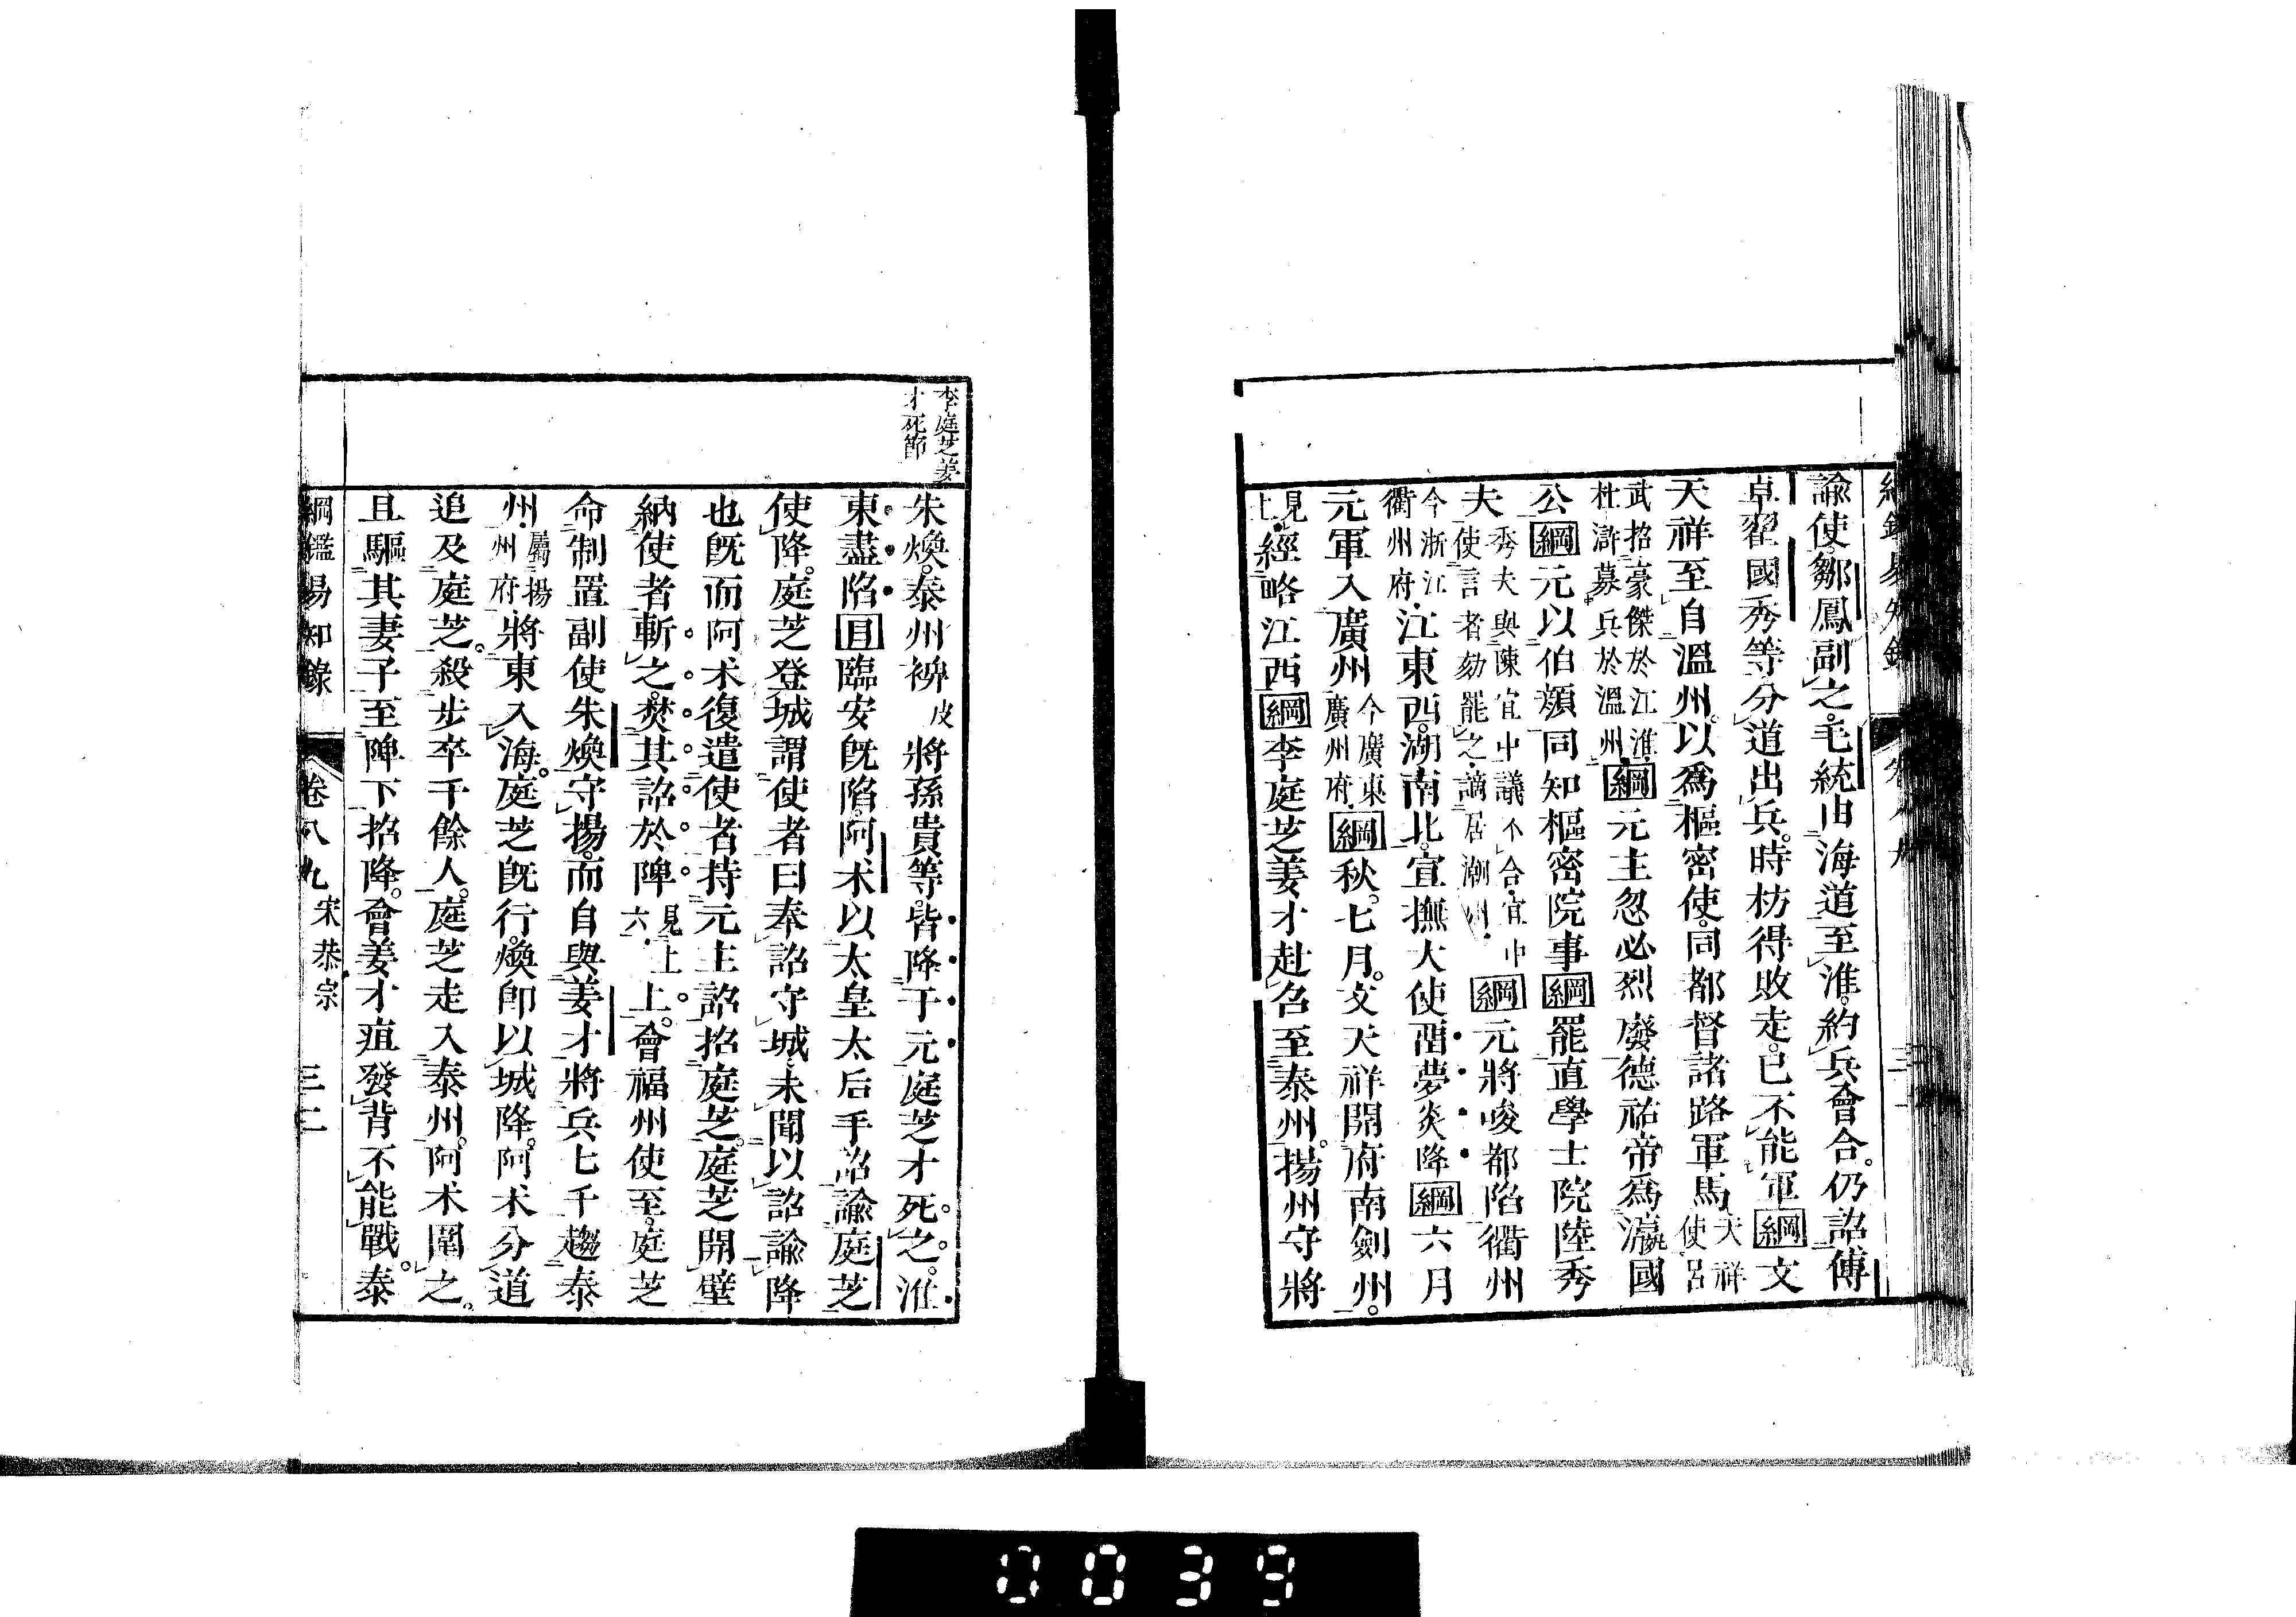 諭使。鄒鳳副之。毛統由海道至淮。約兵會合。仍詔傅
卓翟國秀等分道出兵。時枋得敗走。已不能軍綱文
天祥至自溫州。以爲樞密使。同都督諸路軍馬天祥使呂
武招豪傑於江淮杜滸募兵於溫州綱元主忽必烈廢德祐帝爲瀛國
公綱元以伯顔同知樞密院事綱罷直學士院陸秀
夫秀夫與陳宜中議不合宜中使言者劾罷之謫居潮州綱元將唆都陷衢州
今浙江衢州府江東西。湖南北。宣撫大使畱夢炎降綱六月
元軍入廣州今廣東廣州府綱秋。七月。文天祥開府南劍州。
見上經略江西綱李庭芝姜才赴召至泰州。揚州守將
李庭芝姜
才死節
朱煥。泰州裨皮將孫貴等。皆降于元庭芝才死之。淮
東盡陷目臨安旣陷。阿朮以太皇太后手詔諭庭芝
使降。庭芝登城謂使者曰奉詔守城。未聞以詔諭降
也旣而阿朮復遣使者持元主詔招庭芝。庭芝開壁
納使者斬之。焚其詔於陴見上六上。會福州使至。庭芝
命制置副使朱煥守揚。而自與姜才將兵七千趨泰
州屬揚州府將東入海。庭芝旣行。煥卽以城降。阿朮分道
追及庭芝。殺步卒千餘人。庭芝走入泰州。阿朮圍之。
且驅其妻子至陴下招降。會姜才疽發背不能戰。泰
綱鑑易知錄 卷八九 宋恭宗 三二
0039